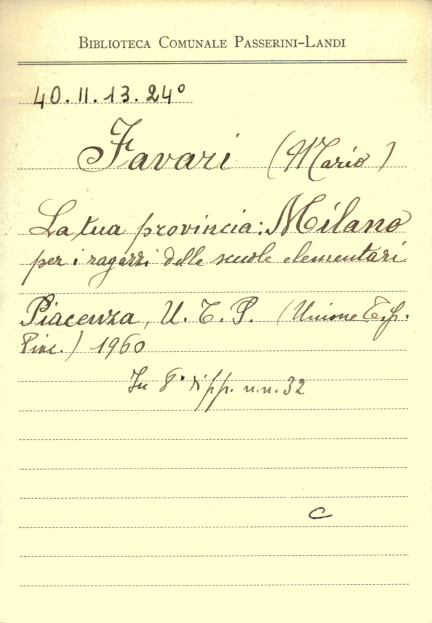 BIBLIOTECA COMUNALE PASSERINI-LANDI
40. II. 13. 24°
Favari (Mario)
La tua provincia: Milano
per i ragazzi delle scuole elementari
Piacenza, U. T. P. (Unione Tip.
Piac.) 1960
In 8° di pp. n.n. 32
C